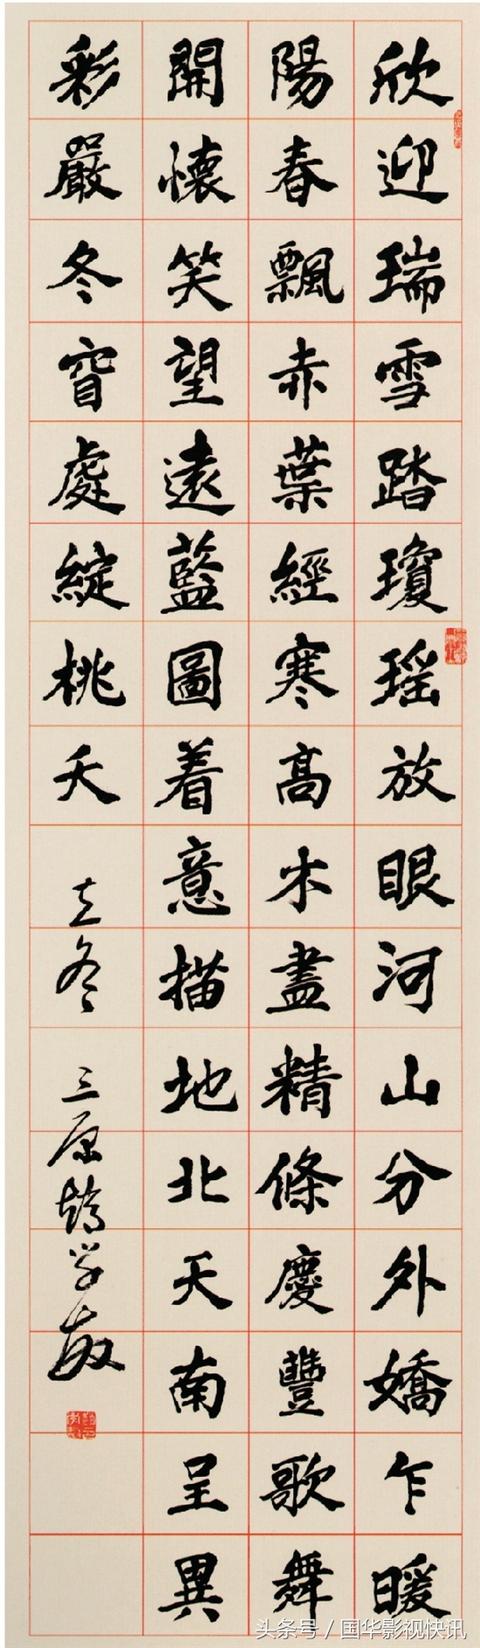 欣迎瑞雪踏瓊瑶放眼河山分外嬌乍暖
陽春飄赤葉經寒高木盡精條慶豐歌舞
開懷笑望遠藍圖着意描地北天南呈異
彩嚴冬窅處綻桃夭
立冬 三原 學敏
头条号 / 国华影视快讯